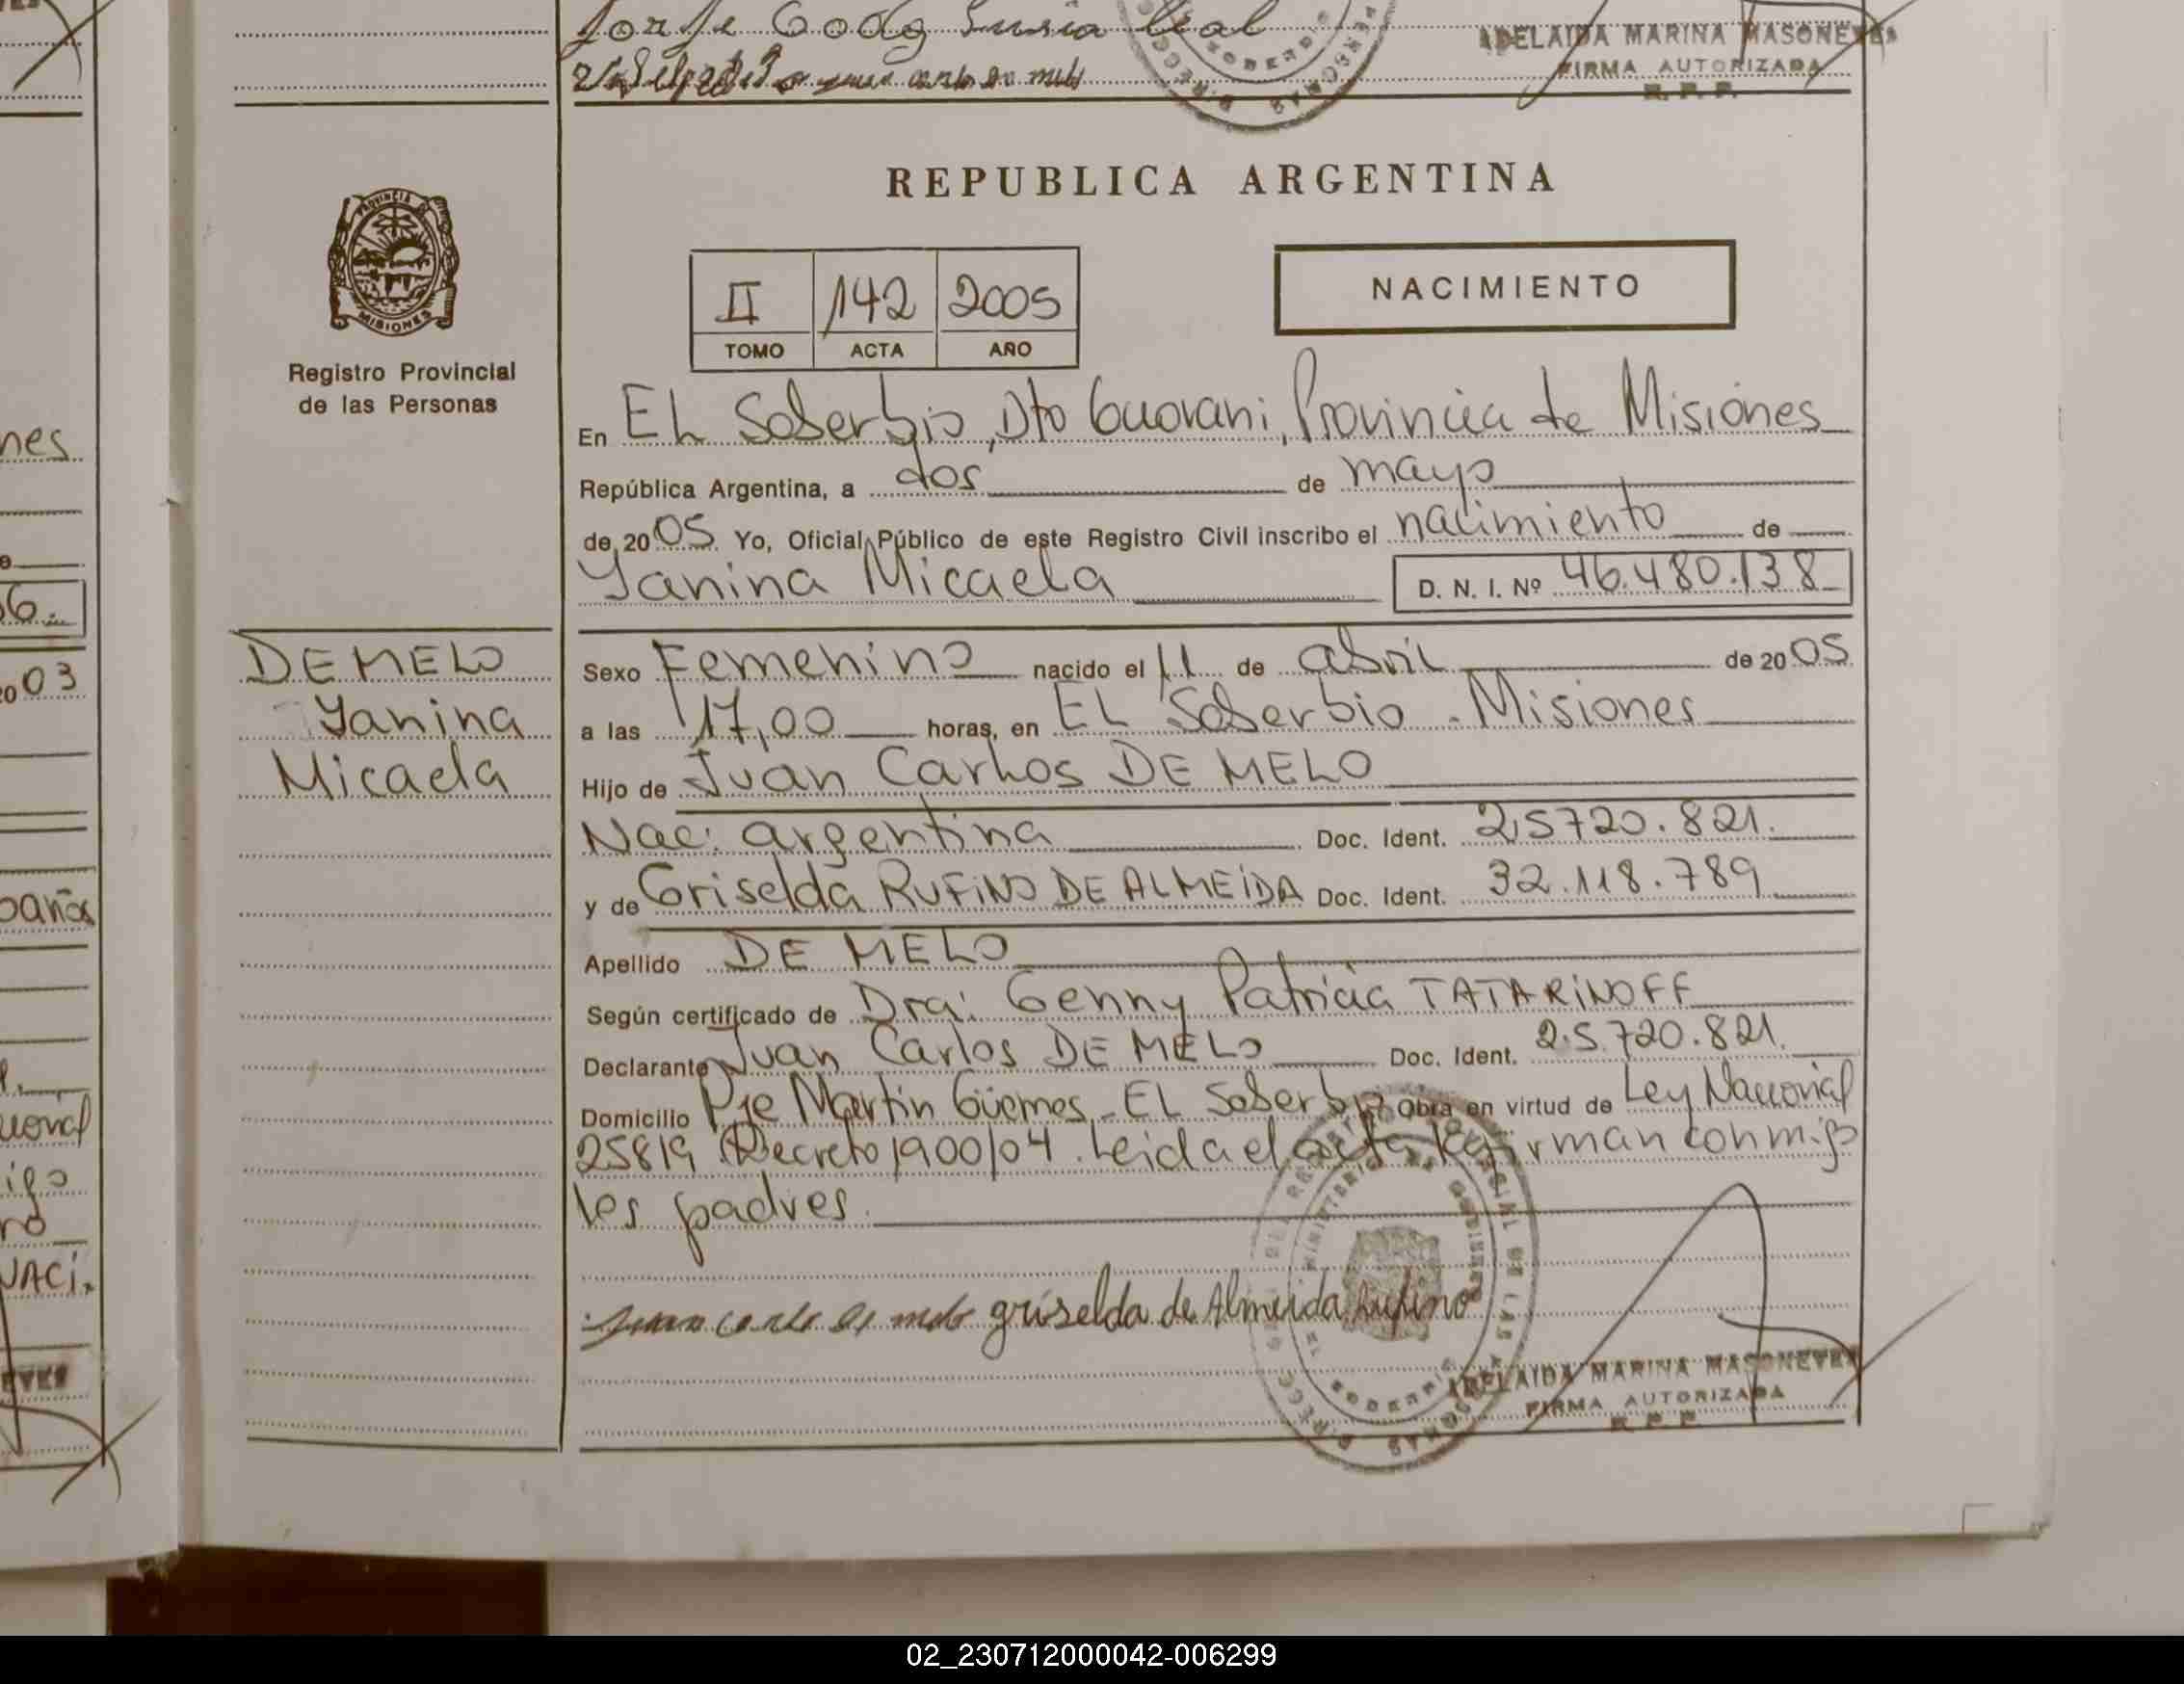 ADELAIDA MARINA MASONEVES
FIRMA AUTORIZADA
R. P. P.
nes
6.
2003
REPUBLICA ARGENTINA
PROVINCIA DE
MISIONES
Registro Provincial
de las Personas
II 142 2005
TOMO ACTA AÑO
NACIMIENTO
En EL Soberbio, Dto Guarani, Provincia de Misiones
República Argentina, a dos de mayo
de 2005 Yo, Oficial Público de este Registro Civil inscribo el nacimiento de
Yanina Micaela D. N. I. Nº 46.480.138
DE MELO
Yanina
Micaela
Sexo Femenino nacido el 11 de abril de 2005
a las 17,00 horas, en EL Soberbio - Misiones
Hijo de Juan Carlos DE MELO
Nac: argentina Doc. Ident. 25720.821.
y de Griselda RUFINO DE ALMEIDA Doc. Ident. 32.118.789
Apellido DE MELO
Según certificado de Dra: Genny Patricia TATARINOFF
Declarante Juan Carlos DE MELO Doc. Ident. 25.720.821.
Domicilio Pje Martin Güemes - EL Soberbio Obra en virtud de Ley Nacional
25819 Decreto 1900/04. Leida el acta la firman conmigo
los padres.
griselda de Almeida Rufino
ADELAIDA MARINA MASONEVES
FIRMA AUTORIZADA
R. P. P.
02_230712000042-006299